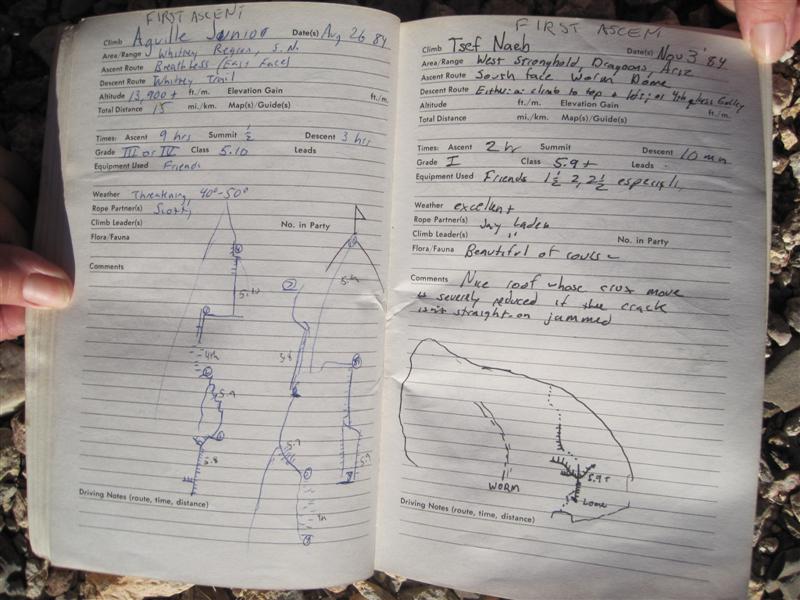 FIRST ASCENT
Climb Aguille Junior Date(s) Aug 26 84
Area/Range Whitney Region, S.N.
Ascent Route Breathless (East Face)
Descent Route Whitney Trail
Altitude 13,900+ ft./m. Elevation Gain ft./m.
Total Distance 15 mi./km. Map(s)/Guide(s)
Times: Ascent 9 hrs Summit 1/2 Descent 3 hrs
Grade III or IV Class 5.10 Leads
Equipment Used Friends
Weather Threatening 40°-50°
Rope Partner(s) Scotty
Climb Leader(s) No. in Party
Flora/Fauna
Comments
5.10
4th
5.9
5.8
5.8
5.9
5.9
Driving Notes (route, time, distance)
FIRST ASCENT
Climb Tsef Naeh Date(s) Nov 3 '84
Area/Range West Stronghold, Dragoons, Ariz
Ascent Route South face Worm Dome
Descent Route Either climb to top or 4th class Gulley
Altitude ft./m. Elevation Gain ft./m.
Total Distance mi./km. Map(s)/Guide(s)
Times: Ascent 2 hr Summit Descent 10 min
Grade I Class 5.9+ Leads
Equipment Used Friends 1 1/2 2, 2 1/2 especially
Weather excellent
Rope Partner(s) Jay Laden
Climb Leader(s) " No. in Party
Flora/Fauna Beautiful of course
Comments Nice roof whose crux move
is severely reduced if the crack
isn't straight-on jammed
5.9+
WORM
Driving Notes (route, time, distance)